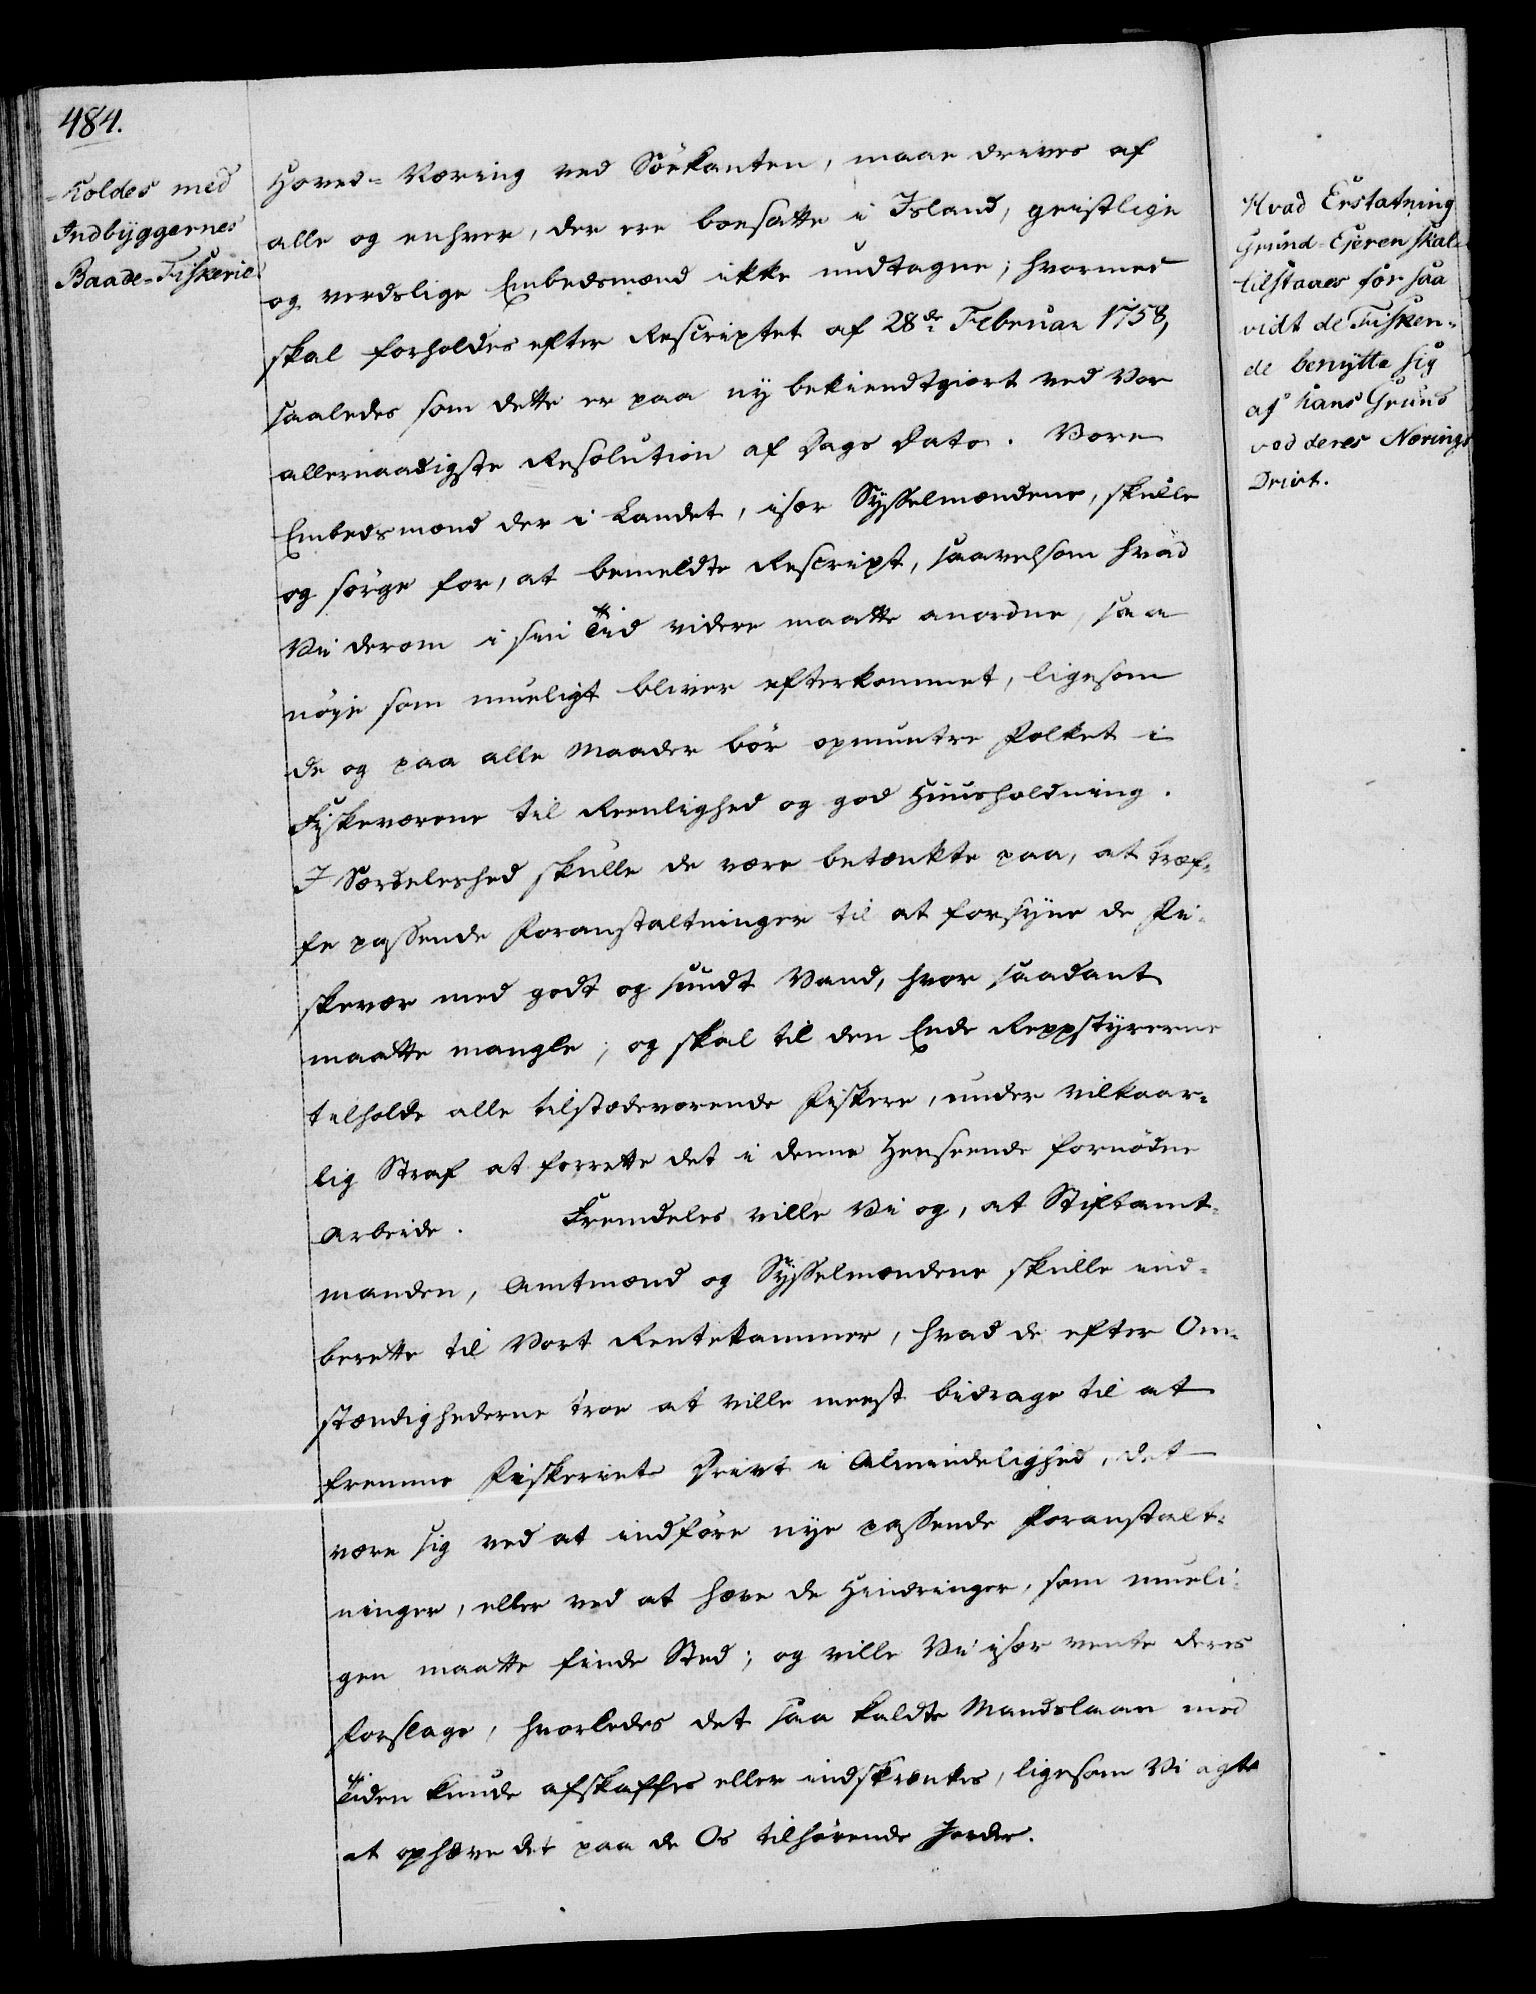 484.
-holdes med
Indbyggernes
Baade-Fiskerie
Hoved-Næring ved Söekanten, maae drives af
alle og enhver, der ere boesatte i Island, geistlige
og verdslige Embedsmænd ikke undtagne; hvormed
skal forholdes efter Rescriptet af 28de Februar 1758,
saaledes som dette er paa ny bekiendtgiort ved Vor
allernaadigste Resolution af Dags Dato. Vore
Embedsmænd der i Landet, især Sysselmændene, skulle
og sörge for, at bemeldte Rescript, saavelsom hvad
Vi derom i sin Tiid videre maatte anordne, saa
nöye som mueligt bliver efterkommet, ligesom
de og paa alle Maader bör opmuntre Folket i
Fiskeværene til Reenlighed og god Huusholdning.
I Særdeleshed skulle de være betænkte paa, at træf-
fe passende Foranstaltninger til at forsyne de Fi-
skevær med godt og sundt Vand, hvor saadant
maatte mangle; og skal til den Ende Reppstyrerne
tilholde alle tilstædeværende Fiskere, under vilkaar-
lig Straf at forrette det i denne Henseende fornödne
Arbeide. Fremdeles ville Vi og, at Stiftamt-
manden, Amtmænd og Sysselmændene skulle ind-
berette til Vort Rentekammer, hvad de efter Om-
stændighederne troe at ville meest bidrage til at
fremme Fiskeriets Drivt i Almindelighed, det
være sig ved at indföre nye passende Foranstalt-
ninger, eller ved at hæve de Hindringer, som mueli-
gen maatte finde Sted; og ville Vi især vente deres
Forslage, hvorledes det saa kaldte Mandslaan med
Tiden kunde afskaffes eller indskrænkes, ligesom Vi agte
at ophæve det paa de Os tilhörende Jorder.
Hvad Erstatning
Grund-Ejeren skal
tilstaaes for saa
vidt de Fisken-
de benytte sig
af hans Grund
ved deres Nærings
Drivt.